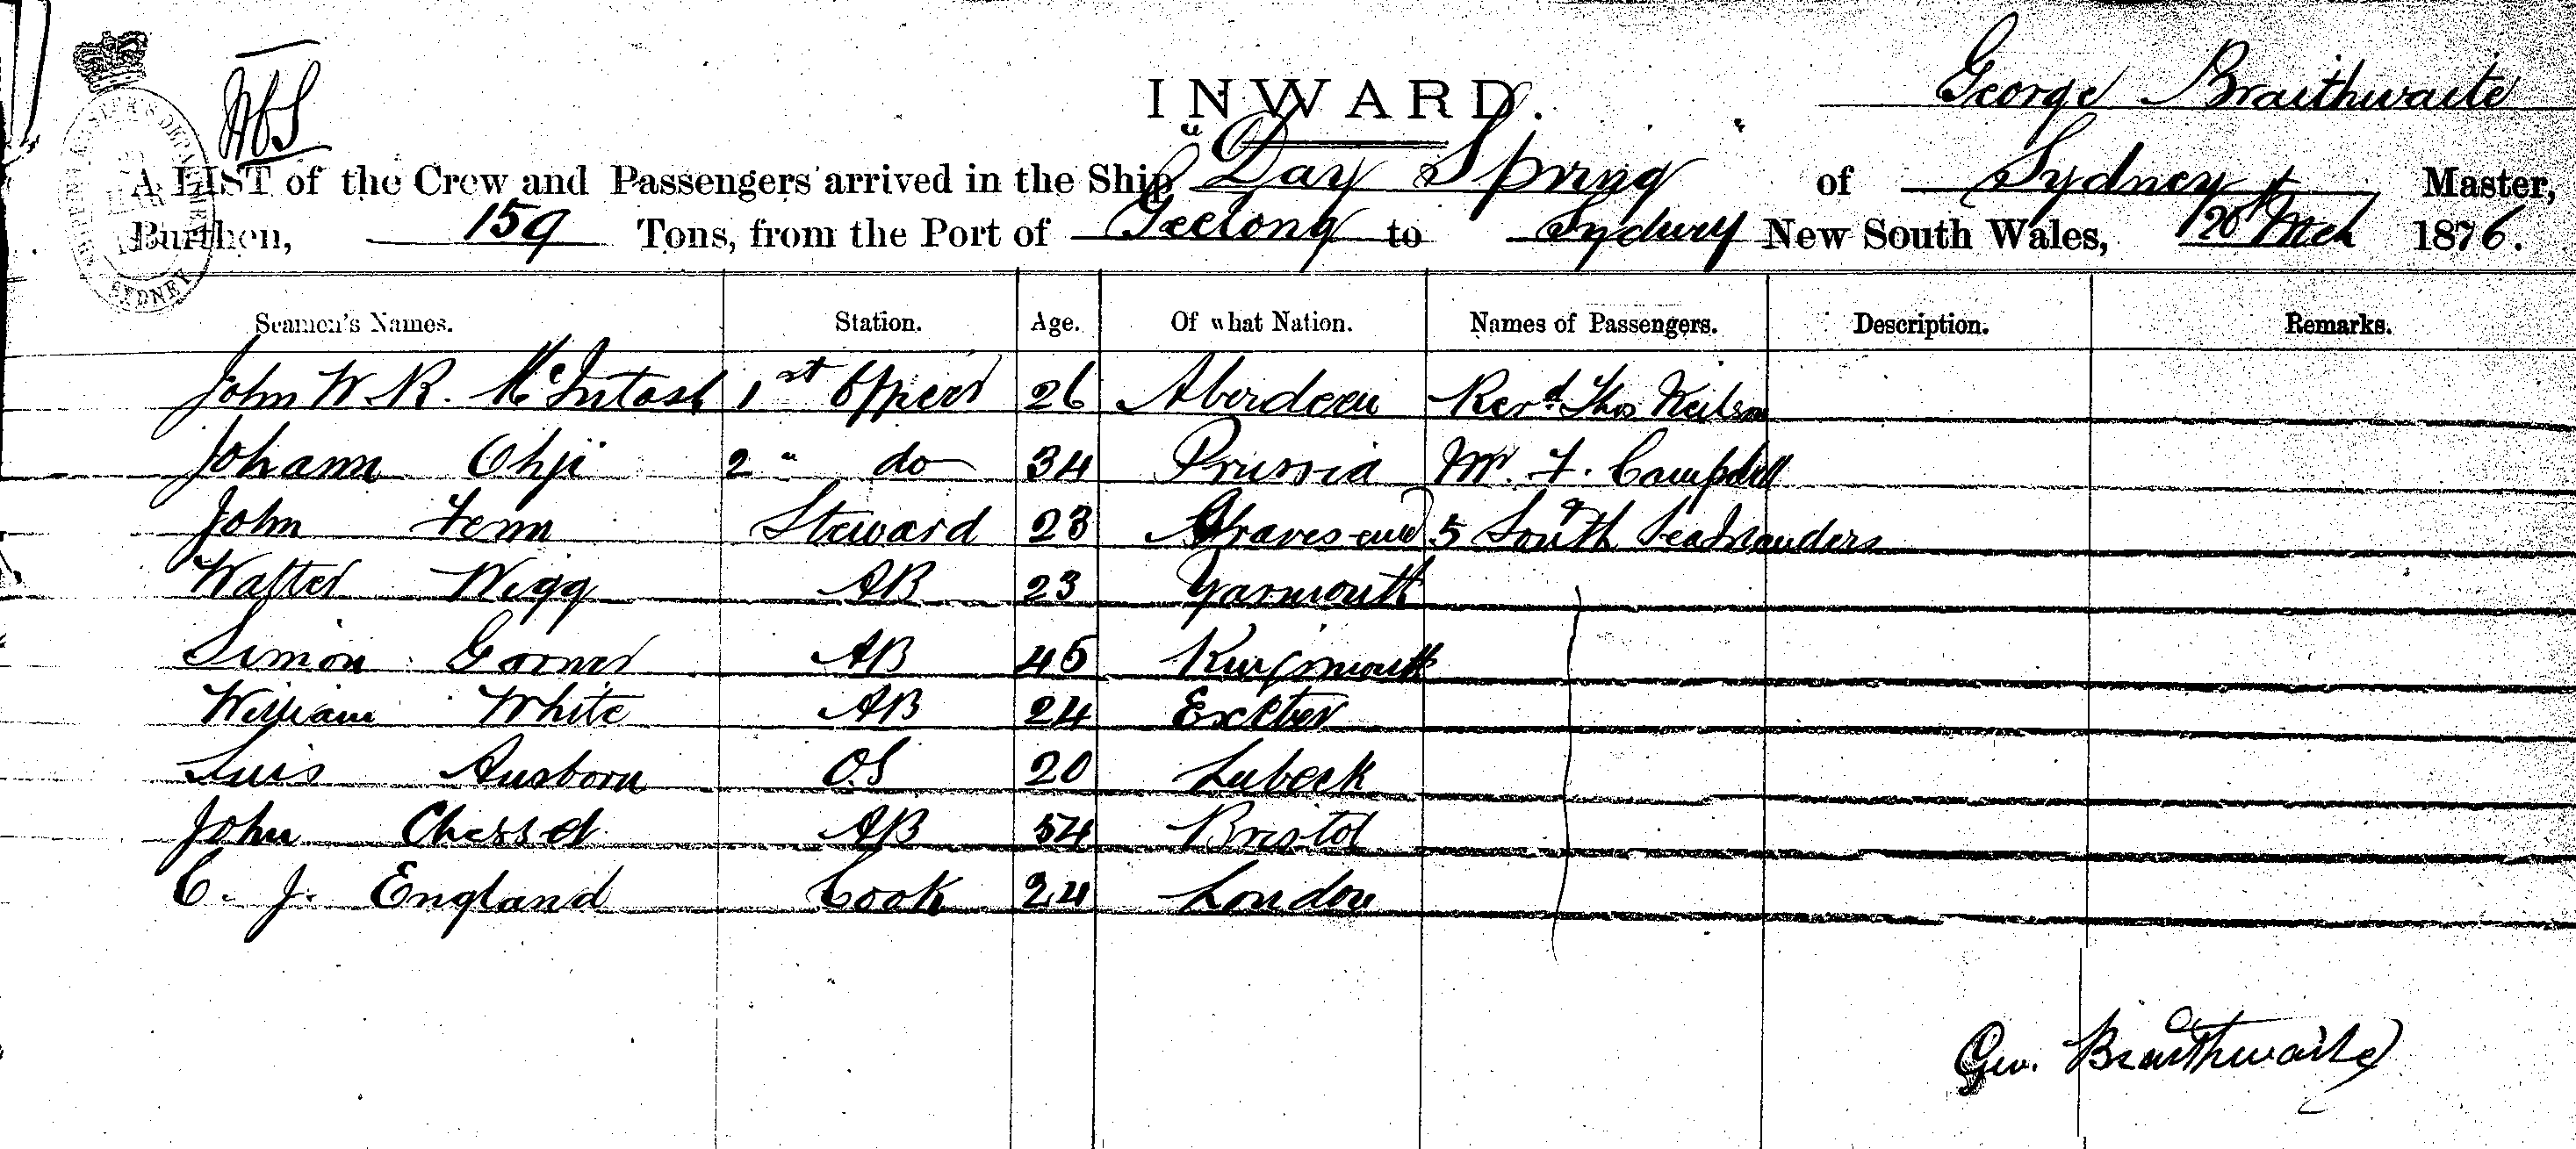 INWARD.
George Braithwaite
A LIST of the Crew and Passengers arrived in the Ship "Day Spring" of Sydney Master,
Burthen, 159 Tons, from the Port of Geelong to Sydney New South Wales, 20th Mch 1876.
Seamen's Names. Station. Age. Of what Nation. Names of Passengers. Description. Remarks.
John W. R. McIntosh 1st Officer 26 Aberdeen Revd. Thos Neilson
Johann 2 " do 34 Prussia Mr. F. Campbell
John Fenn Steward 23 Graves-end 5 South Sea Islanders
Walter Wigg AB 23 Yarmouth
Simon AB 45
William White AB 24 Exeter
Luis Ausborn OS 20 Lubeck
John AB 54 Bristol
C. J. England Cook 24 London
Geo. Braithwaite
SYDNEY